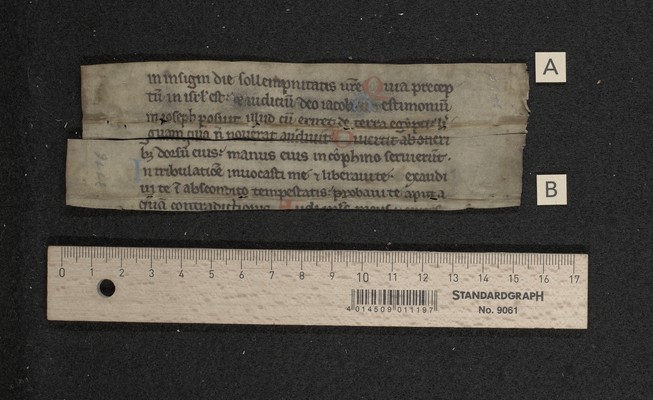 in insigni die sollempnitatis ure Quia precep
tū in isrl est: & iudiciū deo iacob. Testimoniū
in ioseph posuit illud cū exiret de terra egypti: li
guam quā n nouerat audiuit. Diuertit ab oneri
bz dorsū eius: manus eius in cophino seruierūt.
In tribulatiōe inuocasti me & liberaui te: exaudi
ui te ī abscondito tempestatis: probaui te apud a
quā contradictionis. Audi
A
B
0 1 2 3 4 5 6 7 8 9 10 11 12 13 14 15 16 17
4 014509 011197
STANDARDGRAPH
No. 9061